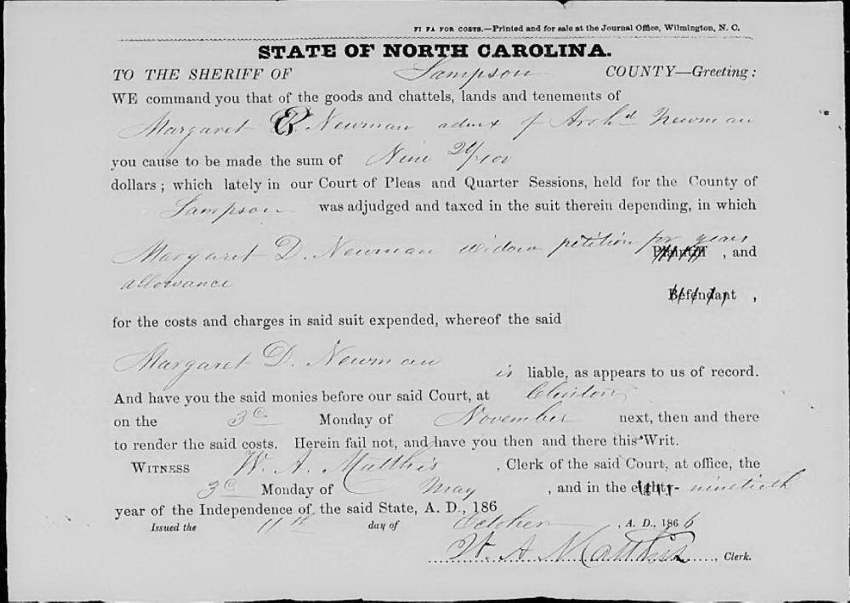 FI FA FOR COSTS.—Printed and for sale at the Journal Office, Wilmington, N. C.
STATE OF NORTH CAROLINA.
TO THE SHERIFF OF Sampson COUNTY—Greeting:
WE command you that of the goods and chattels, lands and tenements of
Margaret D. Newman admx of Archd Newman
you cause to be made the sum of Nine 24/100
dollars; which lately in our Court of Pleas and Quarter Sessions, held for the County of
Sampson was adjudged and taxed in the suit therein depending, in which
Margaret D. Newman widow petition for years
Plaintiff, and
allowance
Defendant,
for the costs and charges in said suit expended, whereof the said
Margaret D. Newman is liable, as appears to us of record.
And have you the said monies before our said Court, at Clinton
on the 3d Monday of November next, then and there
to render the said costs. Herein fail not, and have you then and there this Writ.
WITNESS W. A. Matthis, Clerk of the said Court, at office, the
3d Monday of May, and in the eighty- ninetieth
year of the Independence of the said State, A. D., 186
Issued the 11th day of October, A. D., 1866
W. A. Matthis, Clerk.